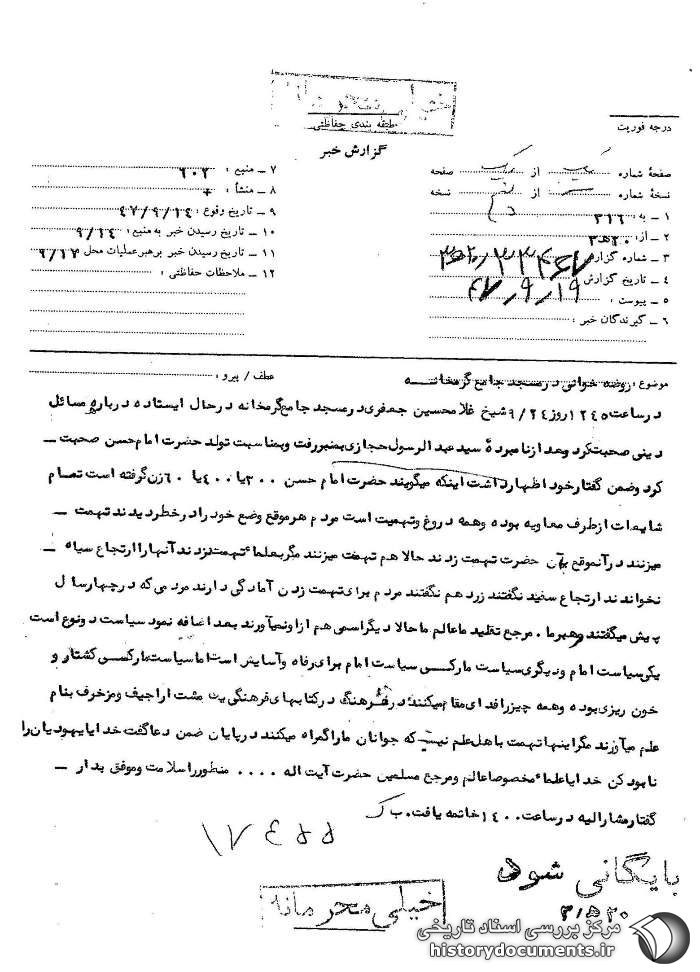 خیلی محرمانه
طبقه بندی حفاظتی
درجه فوریت
گزارش خبر
صفحهٔ شماره یک از یک صفحه
نسخهٔ شماره از نسخه
۱ ـ به : ۳۱۶
۲ ـ از: ۲۰ﻫ۳
۳ ـ شماره گزارش
۴ ـ تاریخ گزارش ۴۷٫۹٫۱۹
۵ ـ پیوست :
۶ ـ گیرندگان خبر :
۷ ـ منبع : ۶۰۲
۸ ـ منشأ : +
۹ ـ تاریخ وقوع : ۴۷/۹/۱۴
۱۰ ـ تاریخ رسیدن خبر به منبع: ۹/۱۴
۱۱ ـ تاریخ رسیدن خبر برهبر عملیات محل ۹/۱۷
۱۲ ـ ملاحظات حفاظتی :
موضوع : روضه خوانی در مسجد جامع گرمخانه
عطف / پیرو :
در ساعت ۱۲۴۵ روز ۹/۲۴ شیخ غلامحسین جعفری در مسجد جامع گرمخانه در حال ایستاده درباره مسائل
دینی صحبت کرد و بعد از نامبردهٔ سید عبدالرسول حجازی بمنبر رفت و بمناسبت تولد حضرت امام حسن صحبت ـ
کرد وضمن گفتار خود اظهار داشت اینکه میگویند حضرت امام حسن ۳۰۰ یا ۴۰۰ یا ۶۰ زن گرفته است تمام
شایعات از طرف معاویه بوده و همه دروغ وتهمیت است مردم هر موقع وضع خود را در خطر دیدند تهمت ـ
میزنند در آنموقع بآن حضرت تهمت زدند حالا هم تهمت میزنند مگر بعلماء تهمت نزدند آنها را ارتجاع سیاه ـ
نخواندند ارتجاع سفید نگفتند زرد هم نگفتند مردم برای تهمت زدن آمادگی دارند مردمی که در چهار سال
پیش میگفتند رهبر ما . مرجع تقلید ما عالم ما حالا دیگر اسمی هم از او نمیآورند بعد اضافه نمود سیاست دو نوع است
یکی سیاست امام ودیگری سیاست مارکسی سیاست امام برای رفاه وآسایش است اما سیاست مارکسی کشتار و
خون ریزی بوده و همه چیز را فدای مقام میکنند؛ در فرهنگ در کتابهای فرهنگی یک مشت اراجیف ومزخرف بنام
علم میآورند مگر اینها تهمت باهل علم نیست که جوانان ما را گمراه میکنند در پایان ضمن دعا گفت خدایا یهودیان را
نابود کن خدایا علماء مخصوصا عالم و مرجع مسلمین حضرت آیت اله .... منظور را سلامت وموفق بدار ـ
گفتار مشارالیه در ساعت ۱۴۰۰ خاتمه یافت. ب ک
بایگانی شود
۲۰ﻫ۳
خیلی محرمانه
مرکز بررسی اسناد تاریخی
historydocuments.ir